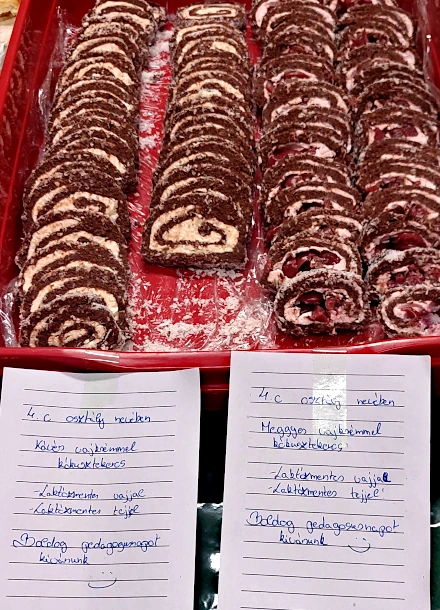 4. c osztály nevében
Kávés vajkrémmel
kókusztekercs
-Laktózmentes vajjal
-Laktózmentes tejjel
Boldog pedagógusnapot
kívánunk
4. c osztály nevében
Meggyes vajkrémmel
kókusztekercs
-Laktózmentes vajjal
-Laktózmentes tejjel
Boldog pedagógusnapot
kívánunk